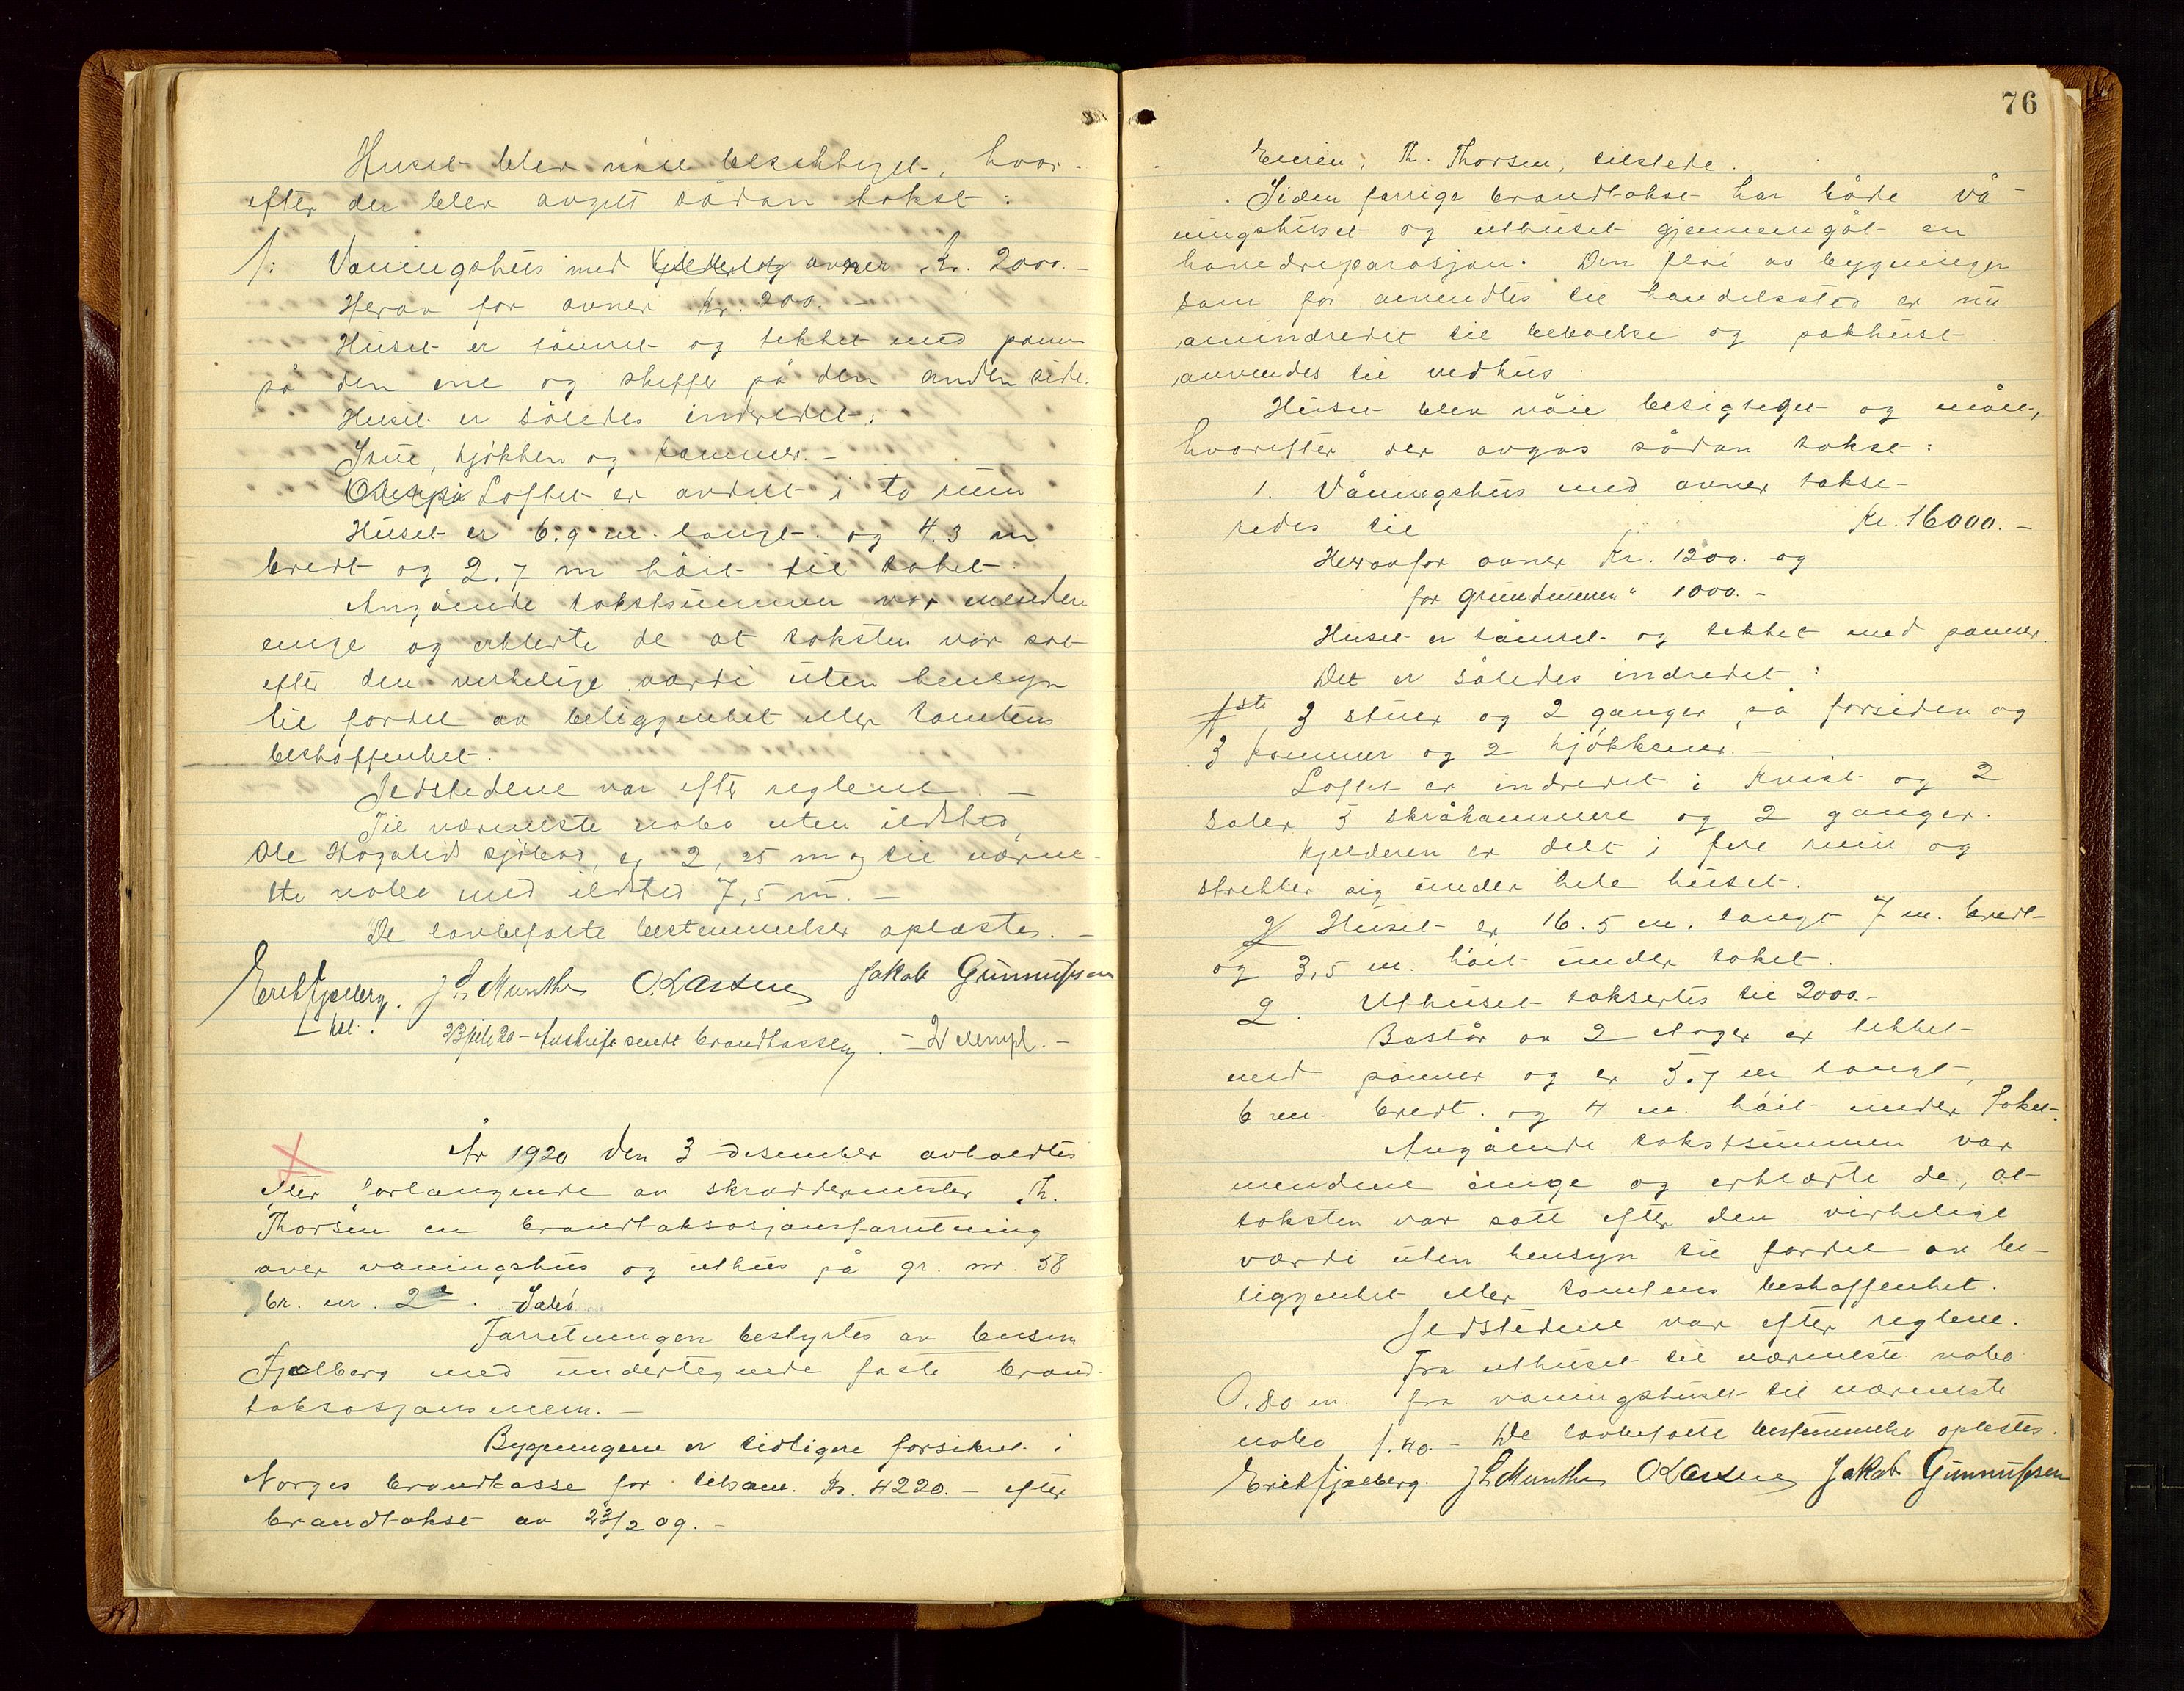 Huset blev nöie besiktiget, hvor-
efter der blev avgitt sådan takst:
1: Vaningshus med ovner Kr. 2000.-
Herav for ovner Kr. 200.-
Huset er tömret og tekket med pann
på den ene og skiffer på den anden side.
Huset er således indredet:
Stue, kjökken og kammer.-
Loftet er avdelt i to rum
Huset er 6.9 m. langt. og 4.3 m
bredt og 2.7 m höit til taket.
Angående takstsummen var mendene
enige og erklerte de at taksten var sat
efter den verkelige værdi uten hensyn
til fordel av beliggenhet eller tomtens
beskaffenhet.
Ildstedene var efter reglene.-
Til nærmeste nabo uten ildsted,
Ole Hågalids sjöbod, er 2,25 m og til nærme-
ste nabo med ildsted 7,5 m.-
De lovbefalte bestemmelser oplæstes.-
Erik Fjælberg. J L Munthe O. Larsen Jakob Gunnufsen
1 kl. 23/ 20 - Avskrift sendt brandkassen. - 2 exempl.-
År 1920 den 3 desember avholdtes
efter forlangende av skræddermester Th.
Thorsen en brandtaksasjonsforretning
over vaningshus og uthus på gr. nr. 58
br. nr. 2
Forretningen bestyrtes av lensm
Fjælberg med undertegnede faste brand-
taksasjonsmenn.-
Bygningene er tidligere forsikret i
Norges brandkasse for tilsam. Kr. 4220.- efter
brandtakst av 23/2 09.-
76
Eieren; Th. Thorsen, tilstede.
Siden forrige brandtakst har både vå-
ningshuset og uthuset gjennemgåt en
hovedreparasjon. Den flöi av bygningen
som för anvendtes til handelssted er nu
omindredet til beboelse og pakhuset
anvendes til vedhus.
Huset blev nöie besigtiget og målt,
hvorefter der avgas sådan takst:
1. Våningshus med ovner takse-
redes til Kr. 16000.-
Herav for ovner Kr. 1200. og
for grundmuren " 1000.-
Huset er tömret og tekket med panner.
Det er således indredet:
1ste 3 stuer og 2 ganger på forsiden og
3 kammer og 2 kjökkener.-
Loftet er indredet i Kvist og 2
saler 3 skråkammere og 2 ganger.
Kjelderen er delt i fire rum og
strekker sig under hele huset.
Huset er 16.5 m. langt 7 m. bredt
og 3,5 m. höit under taket.
2. Uthuset taksertes til 2000.-
Består av 2 etager er tekket
med panner og er 5.7 m langt,
6 m. bredt. og 4 m. höit under taket.
Angående takstsummen var
mendene enige og erklærte de, at
taksten var satt efter den virkelige
værdi uten hensyn til fordel av be-
liggenhet eller tomtens beskaffenhet.
Ildstedene var efter reglene.
Fra uthuset til nærmeste nabo
0.80 m. fra vaningshuset til nærmeste
nabo 1.40.- De lovbefalte bestemmelser oplestes.
Erik Fjælberg. J L Munthe O Larsen Jakob Gunnufsen